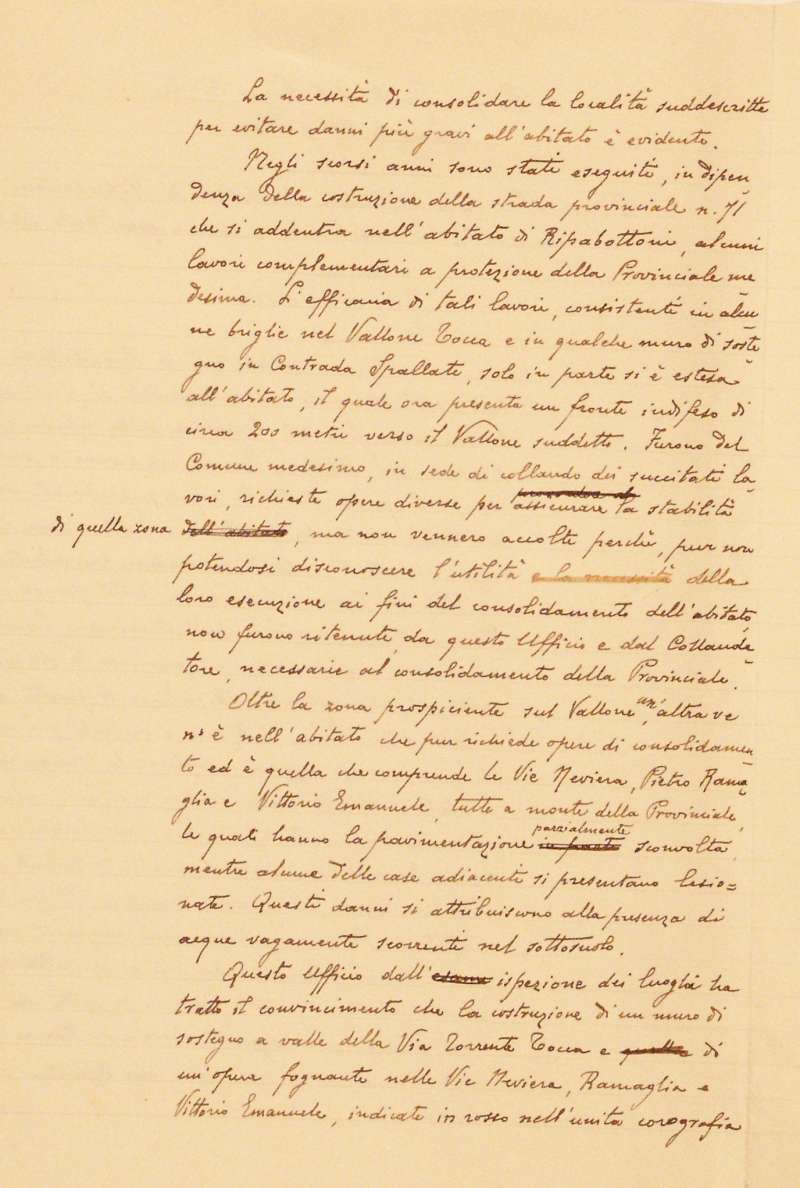 La necessità di consolidare la località suddescritte
per evitare danni più gravi all'abitato è evidente.
Negli scorsi anni sono stati eseguiti, in dipen
denza della costruzione della strada provinciale n. 71
che si addentra nell'abitato di Ripabottoni, alcuni
lavori complementari a protezione della Provinciale me
desima. L'efficacia di tali lavori, consistenti in alcu
ne briglie nel Vallone Tocca e in qualche muro di soste
gno in Contrada Spallate, solo in parte si è estesa
all'abitato, il quale ora presenta un fronte indifeso di
circa 200 metri verso il Vallone suddetto. Furono del
Comune medesimo, in sede di collaudo dei succitati la
vori, richieste opere diverse per assicurare la stabilità
di quella zona dell'abitato, ma non vennero accolte perchè, pur non
potendosi disconoscere l'utilità e la necessità della
loro esecuzione ai fini del consolidamento dell'abitato,
non furono ritenute, da questo Ufficio e dal Collauda
tore, necessarie al consolidamento della Provinciale.
Oltre la zona prospiciente sul Vallone un'altra ve
n'è nell'abitato che pur richiede opere di consolidamen
to ed è quella che comprende le Vie Neviera, Pietro Rama
glia e Vittorio Emanuele, tutte a monte della Provinciale,
le quali hanno la pavimentazione parzialmente in parte sconvolta,
mentre alcune delle case adiacenti si presentano lesio=
nate. Questi danni si attribuiscono alla presenza di
acque vagamente scorrenti nel sottosuolo.
Questo Ufficio dall'esame ispezione dei luoghi ha
tratto il convincimento che la costruzione di un muro di
sostegno a valle della Via Torrente Tocca e quella di
un'opera fognante nelle Vie Neviera, Ramaglia e
Vittorio Emanuele, indicate in rosso nell'unita corografia